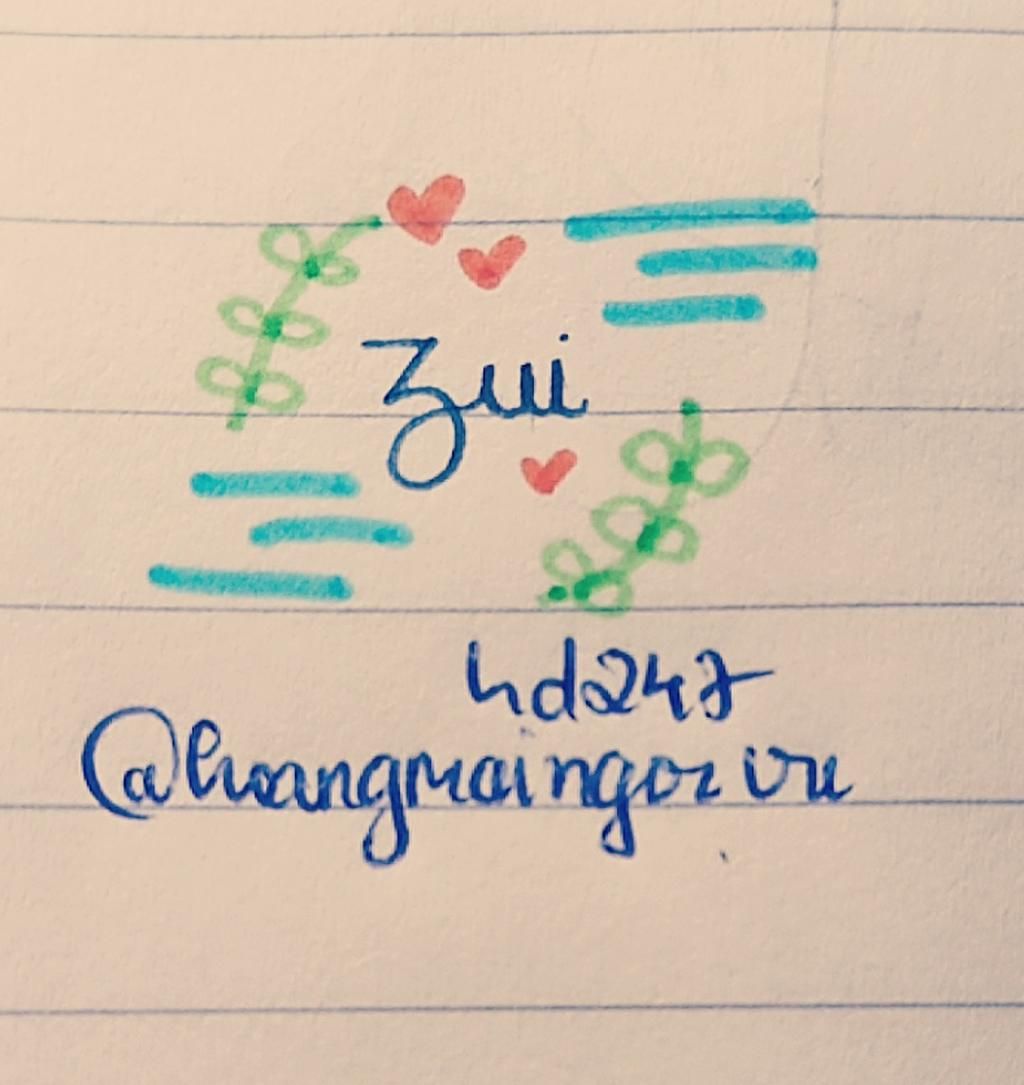 Zui
hd247
@hoangmaingoc vu